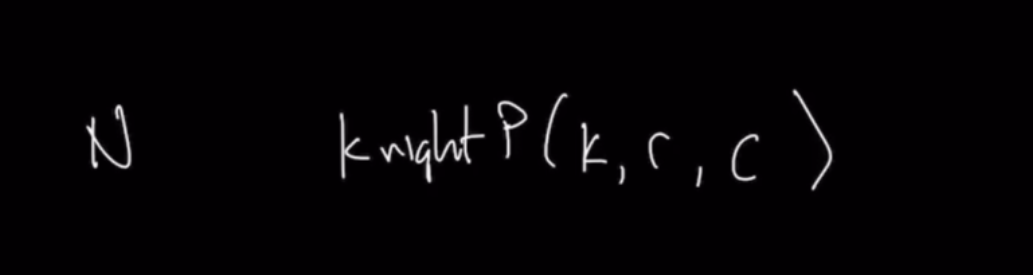 N knightP(k, r, c)